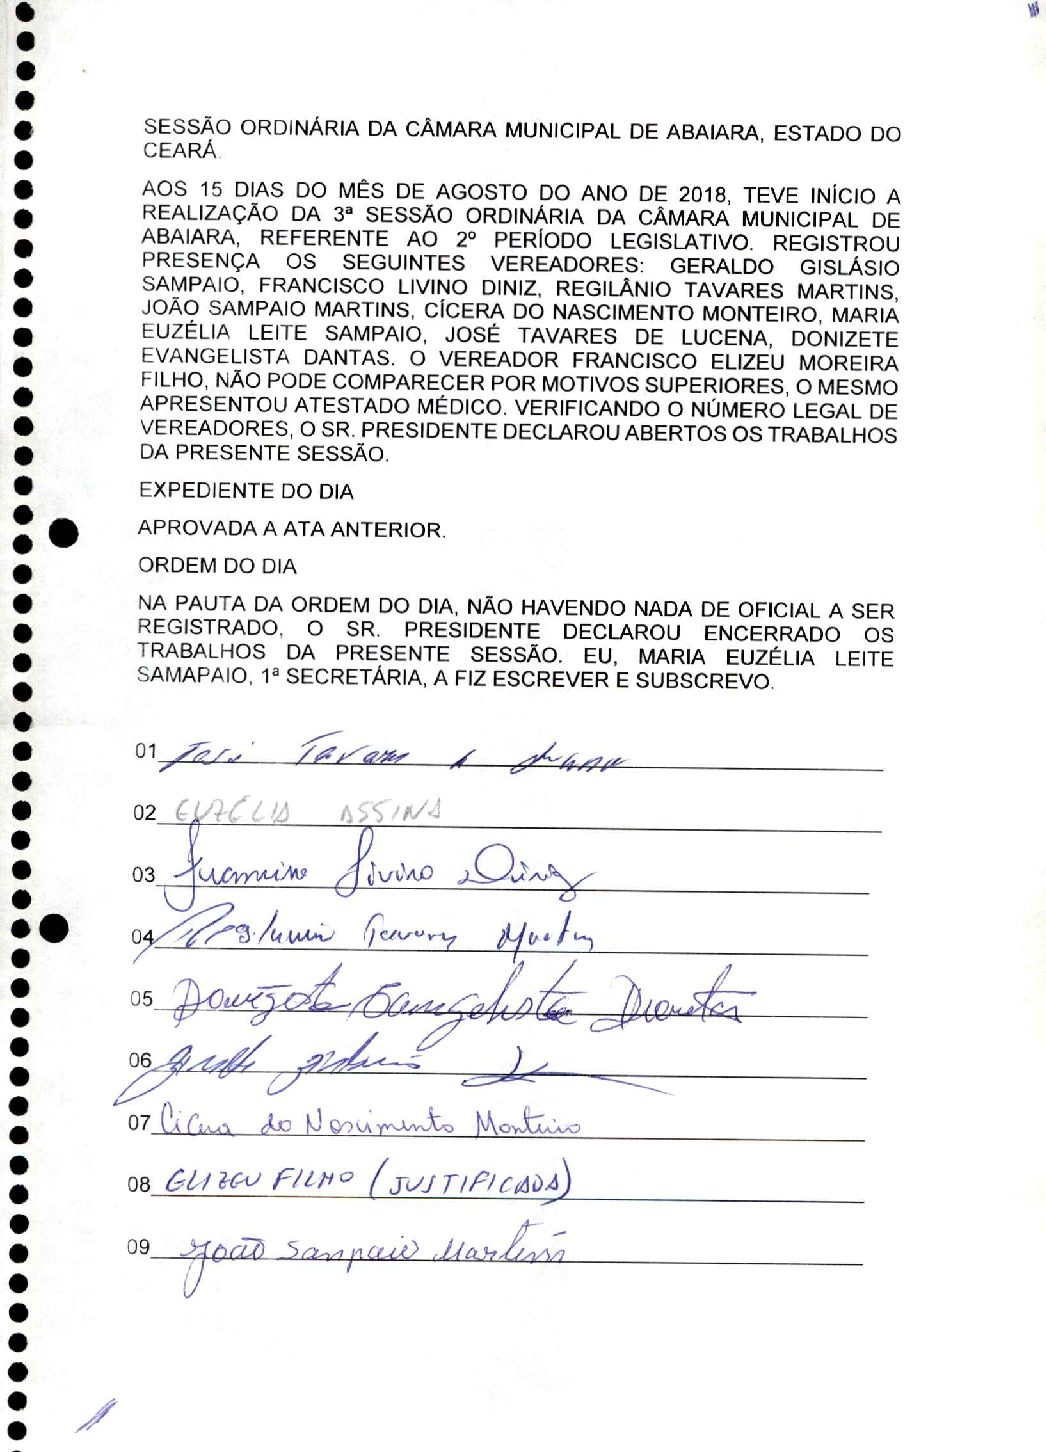 SESSÃO ORDINÁRIA DA CÂMARA MUNICIPAL DE ABAIARA, ESTADO DO
CEARÁ.
AOS 15 DIAS DO MÊS DE AGOSTO DO ANO DE 2018, TEVE INÍCIO A
REALIZAÇÃO DA 3ª SESSÃO ORDINÁRIA DA CÂMARA MUNICIPAL DE
ABAIARA, REFERENTE AO 2º PERÍODO LEGISLATIVO. REGISTROU
PRESENÇA OS SEGUINTES VEREADORES: GERALDO GISLÁSIO
SAMPAIO, FRANCISCO LIVINO DINIZ, REGILÂNIO TAVARES MARTINS,
JOÃO SAMPAIO MARTINS, CÍCERA DO NASCIMENTO MONTEIRO, MARIA
EUZÉLIA LEITE SAMPAIO, JOSÉ TAVARES DE LUCENA, DONIZETE
EVANGELISTA DANTAS. O VEREADOR FRANCISCO ELIZEU MOREIRA
FILHO, NÃO PODE COMPARECER POR MOTIVOS SUPERIORES, O MESMO
APRESENTOU ATESTADO MÉDICO. VERIFICANDO O NÚMERO LEGAL DE
VEREADORES, O SR. PRESIDENTE DECLAROU ABERTOS OS TRABALHOS
DA PRESENTE SESSÃO.
EXPEDIENTE DO DIA
APROVADA A ATA ANTERIOR.
ORDEM DO DIA
NA PAUTA DA ORDEM DO DIA, NÃO HAVENDO NADA DE OFICIAL A SER
REGISTRADO, O SR. PRESIDENTE DECLAROU ENCERRADO OS
TRABALHOS DA PRESENTE SESSÃO. EU, MARIA EUZÉLIA LEITE
SAMAPAIO, 1ª SECRETÁRIA, A FIZ ESCREVER E SUBSCREVO.
01 José Tavares
02 EUZÉLIA ASSINA
03 Livino Diniz
04 Tavares Martins
05 Donizete Evangelista Dantas
06
07 Cicera do Nascimento Monteiro
08 ELIZEU FILHO (JUSTIFICADA)
09 João Sampaio Martins